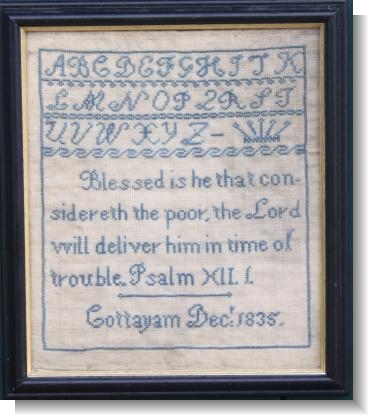 ABCDEFGHIJK
LMNOPQRST
UVWXYZ–
Blessed is he that con-
sidereth the poor, the Lord
will deliver him in time of
trouble. Psalm XII. I.
Cottayam Decr. 1835.